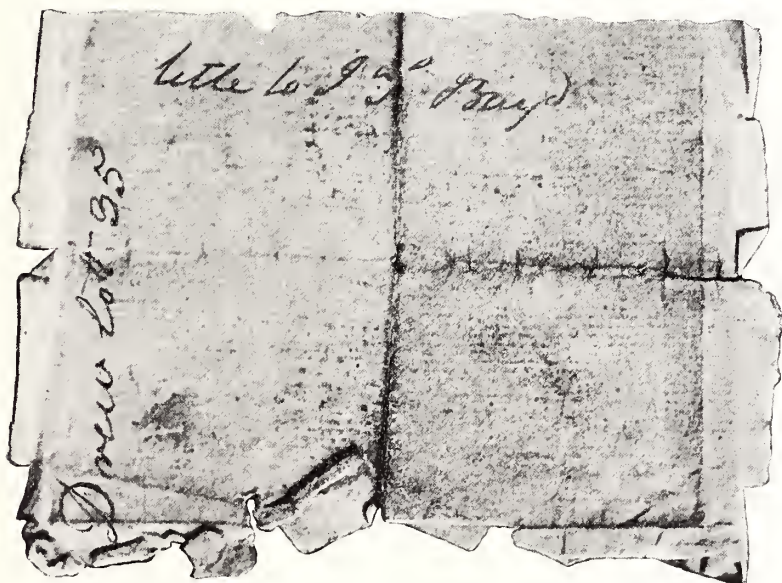 title to Jno Boyd
Drew lot 35